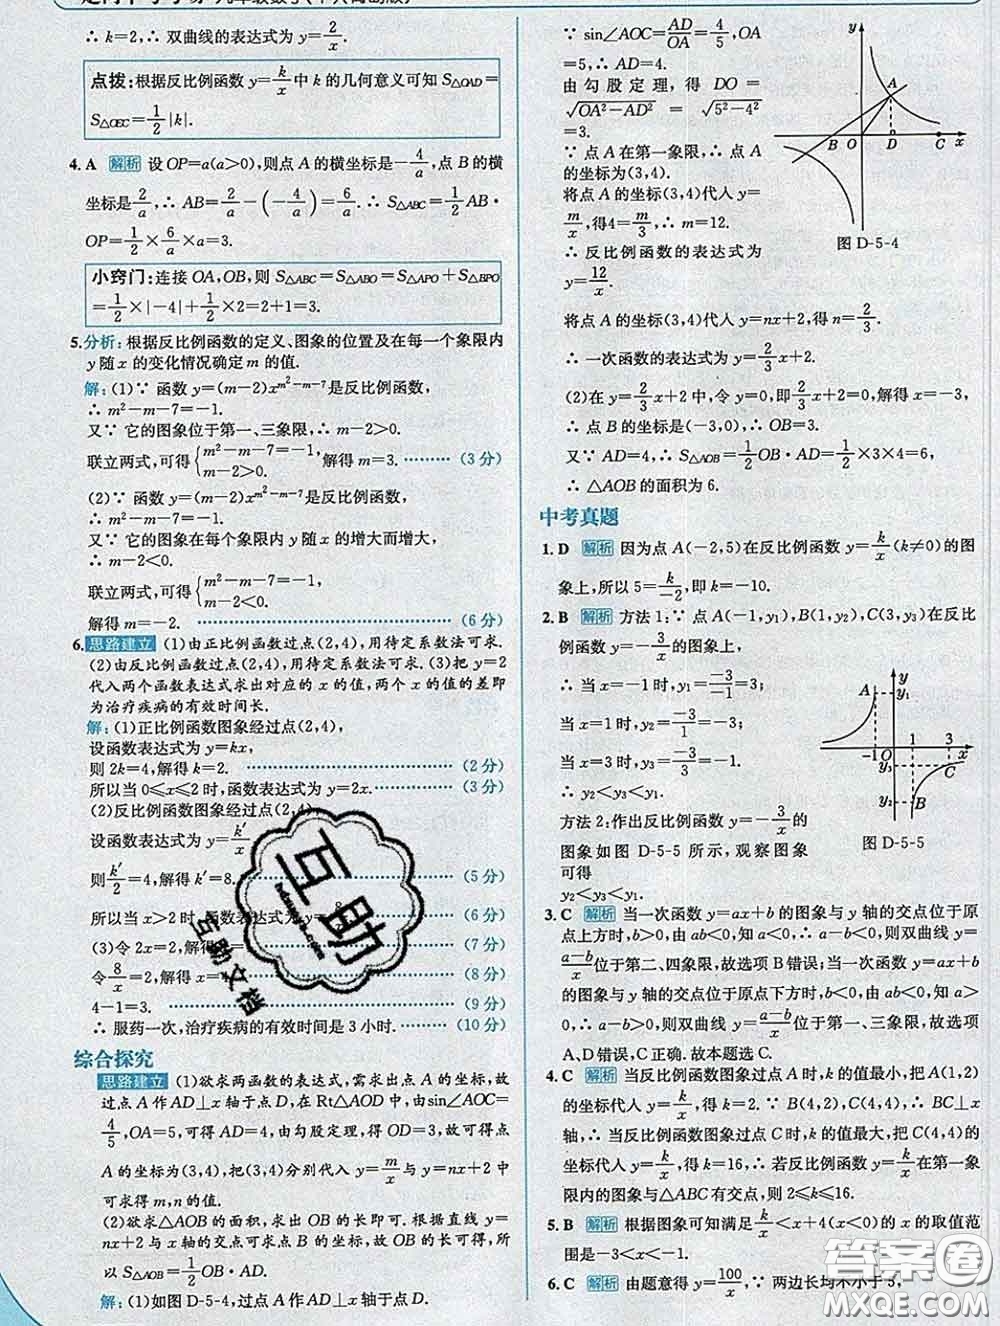 ∴ k=2,∴ 双曲线的表达式为 y=2/x.
点拨:根据反比例函数 y=k/x 中 k 的几何意义可知 S△OAD=
S△OEC=1/2|k|.
4. A 解析 设 OP=a(a>0),则点 A 的横坐标是-4/a,点 B 的横
坐标是2/a,∴ AB=2/a-(-4/a)=6/a,∴ S△ABC=1/2AB·
OP=1/2×6/a×a=3.
小窍门:连接 OA,OB,则 S△ABC=S△ABO=S△APO+S△BPO
=1/2×|-4|+1/2×2=2+1=3.
5.分析:根据反比例函数的定义、图象的位置及在每一个象限内
y 随 x 的变化情况确定 m 的值.
解:(1)∵ 函数 y=(m-2)x^{m²-m-7}是反比例函数,
∴ m²-m-7=-1.
又∵ 它的图象位于第一、三象限,∴ m-2>0.
联立两式,可得{m²-m-7=-1, m-2>0, 解得 m=3. ……… (3 分)
(2)∵ 函数 y=(m-2)x^{m²-m-7}是反比例函数,
∴ m²-m-7=-1.
又∵ 它的图象在每个象限内 y 随 x 的增大而增大,
∴ m-2<0.
联立两式,可得{m²-m-7=-1, m-2<0,
解得 m=-2. ……… (6 分)
6. 思路建立 (1)由正比例函数过点(2,4),用待定系数法可求.
(2)由反比例函数过点(2,4),用待定系数法可求.(3)把 y=2
代入两个函数表达式求出对应的 x 的值,两个 x 的值的差即
为治疗疾病的有效时间长.
解:(1)正比例函数图象经过点(2,4),
设函数表达式为 y=kx,
则 2k=4,解得 k=2. ……… (2 分)
所以当 0≤x≤2 时,函数表达式为 y=2x. ……… (3 分)
(2)反比例函数图象经过点(2,4)
设函数表达式为 y=k′/x
则k′/2=4,解得 k′=8. ……… (5 分)
所以当 x>2 时,函数表达式为 8 ……… (6 分)
(3)令 2x=2,解得 ……… (7 分)
令8/x=2,解得 x= ……… (8 分)
4-1=3. ……… (9 分)
∴ 服药一次,治疗疾病的有效时间是 3 小时. ……… (10 分)
综合探究
思路建立 (1)欲求两函数的表达式,需求出点 A 的坐标,故
过点 A 作 AD⊥x 轴于点 D,在 Rt△AOD 中,由sin∠AOC=
4/5,OA=5,可得 AD=4,由勾股定理,得 OD=3,故可求得点
A 的坐标为(3,4),把(3,4)分别代入 y=m/x与 y=nx+2 中
可求得 m,n 的值.
(2)欲求△AOB 的面积,求出 OB 的长即可.根据直线 y=
nx+2 与 x 轴的交点可求点 B 的坐标,故 OB 的长可得,所
以 S△AOB=1/2OB·AD.
解:(1)如图 D-5-4,过点 A 作 AD⊥x 轴于点 D.
∵ sin∠AOC=AD/OA=4/5,OA
=5,∴ AD=4.
由勾股定理,得 DO=
√(OA²-AD²)=√(5²-4²)
=3.
∵ 点 A 在第一象限,∴ 点 A
的坐标为(3,4).
将点 A 的坐标(3,4)代入 y=
m/x,得4=m/3,∴ m=12.
∴ 反比例函数的表达式为
y=12/x.
y
A
B O D C x
图 D-5-4
将点 A 的坐标(3,4)代入 y=nx+2,得 n=2/3.
∴ 一次函数的表达式为 y=2/3x+2.
(2)在 y=2/3x+2 中,令 y=0,即2/3x+2=0,解得 x=-3,
∴ 点 B 的坐标是(-3,0),∴ OB=3.
又∵ AD=4,∴ S△AOB=1/2OB·AD=1/2×3×4=6,
∴ △AOB 的面积为 6.
中考真题
1. D 解析 因为点 A(-2,5)在反比例函数 y=k/x(k≠0)的图
象上,所以 5=k/-2,即 k=-10.
2. B 解析 方法 1:∵ 点 A(-1,y₁),B(1,y₂),C(3,y₃)在反比
例函数 y=-3/x的图象上,
∴ 当 x=-1 时,y₁=-3/-1=3;
当 x=1 时,y₂=-3/1=-3;
当 x=3 时,y₃=-3/3=-1.
∴ y₂<y₃<y₁.
方法 2:作出反比例函数 y=-3/x的
图象如图 D-5-5 所示,观察图象
可得
y₂<y₃<y₁.
y
A y₁
-1 O 1 3 x
y₃ C
y₂ B
图 D-5-5
3. C 解析 当一次函数 y=ax+b 的图象与 y 轴的交点位于原
点上方时,b>0,由 ab<0,知 a<0,∴ a-b<0,则双曲线 y=
a-b/x位于第二、四象限,故选项 B 错误;当一次函数 y=ax+b
的图象与 y 轴的交点位于原点下方时,b<0,由 ab<0,知 a>
0,∴ a-b>0,则双曲线 y=a-b/x位于第一、三象限,故选项
A、D 错误,C 正确. 故本题选 C.
4. C 解析 当反比例函数图象过点 A 时,k 的值最小,把 A(1,2)
的坐标代入 y=k/x,得 k=2.∵ B(4,2),C(4,4),∴ BC⊥x
轴,∴ 当反比例函数图象过点 C 时,k 的值最大,把 C(4,4)的
坐标代入 y=k/x,得 k=16,∴ 若反比例函数 y=k/x在第一象
限内的图象与△ABC 有交点,则 2≤k≤16.
5. B 解析 根据图象可知满足k/x<x+4(k<0)的 x 的取值范
围是-3<x<-1.
6. C 解析 由题意得 y=100/x,∵ 两边长均不小于 5,
互助
互助文档
答案圈
MXQE.COM